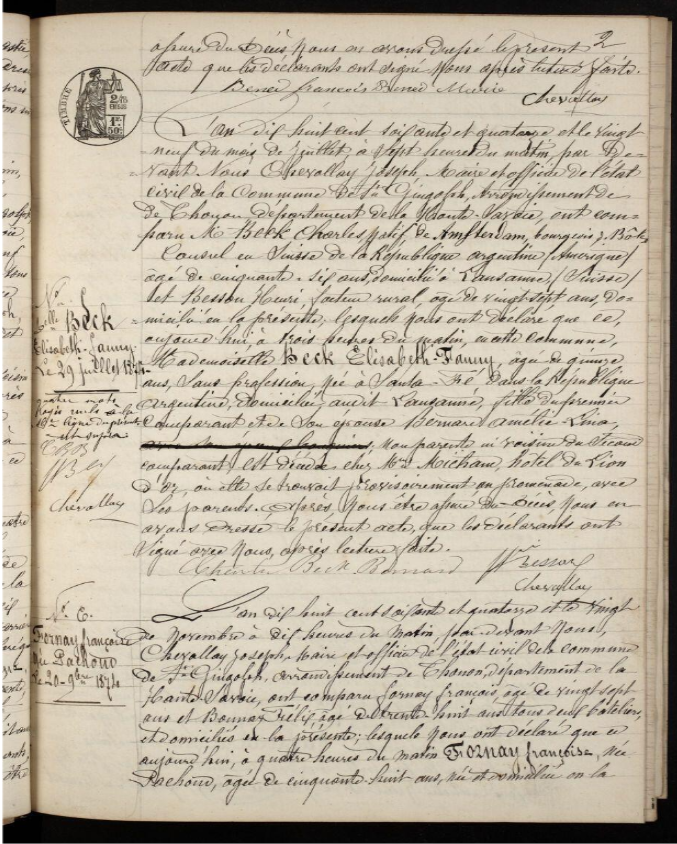 2
assuré du Décès Nous en avons dressé le présent
acte que les déclarants ont signé Nous après lecture faite.
Bened françois Bened Marie
Chevallay
TIMBRE
L'an dix huit cent soixante et quatorze et le vingt
neuf du mois de Juillet à sept heures du matin, par De-
vant Nous Chevallay Joseph, Maire et officier de l'état
civil de la Commune de St Gingolph, Arrondissement de
de Thonon, département de la Haute-Savoie, ont com-
paru Mr Beck Charles, natif de Amsterdam, bourgeois
Consul en Suisse de la République argentine,
âgé de cinquante-six ans, domicilié à Lausanne, (Suisse)
et Besson Henri, facteur rural, âgé de vingt sept ans, do-
micilié en la présente; lesquels nous ont déclaré que ce,
aujourd'hui, à trois heures du matin, en cette commune,
Mademoiselle Beck Elisabeth-Fanny, âgée de quinze
ans, Sans profession, née à Santa-Fé, dans la République
argentine, domiciliée audit Lausanne, fille du premier
Comparant et de Son épouse Bernard amélie Lina,
Non parente ni voisine du Second
comparant, est décédée chez Mme Michaux, hôtel du Lion
d'or, où elle se trouvait provisoirement en promenade, avec
Ses parents. Après Nous être assuré du Décès, Nous en
avons Dressé le présent acte, que les déclarants ont
Signé avec Nous, après lecture faite.
Charles Beck Bernard
Besson
Chevallay
No
Mlle Beck
Elisabeth-Fanny
Le 29 Juillet 1874
quatre mots
rayés
ligne du présent
Chevallay
L'an dix huit cent soixante et quatorze et le vingt
de Novembre à dix heures du Matin, par devant Nous,
Chevallay Joseph, Maire et officier de l'état civil de la commune
de St Gingolph, arrondissement de Thonon, département de la
Haute Savoie, ont comparu fornay françois, âgé de vingt sept
ans et Bonnaz Félix âgé de trente-huit ans tous deux bateliers,
et domiciliés en la présente; lesquels Nous ont déclaré que ce
aujourd'hui, à quatre heures du matin Fornay françoise, née
Pachoud, agée de cinquante-huit ans, née et domiciliée en la
No 6.
Fornay françoise
née Pachoud
Le 20 9bre 1874